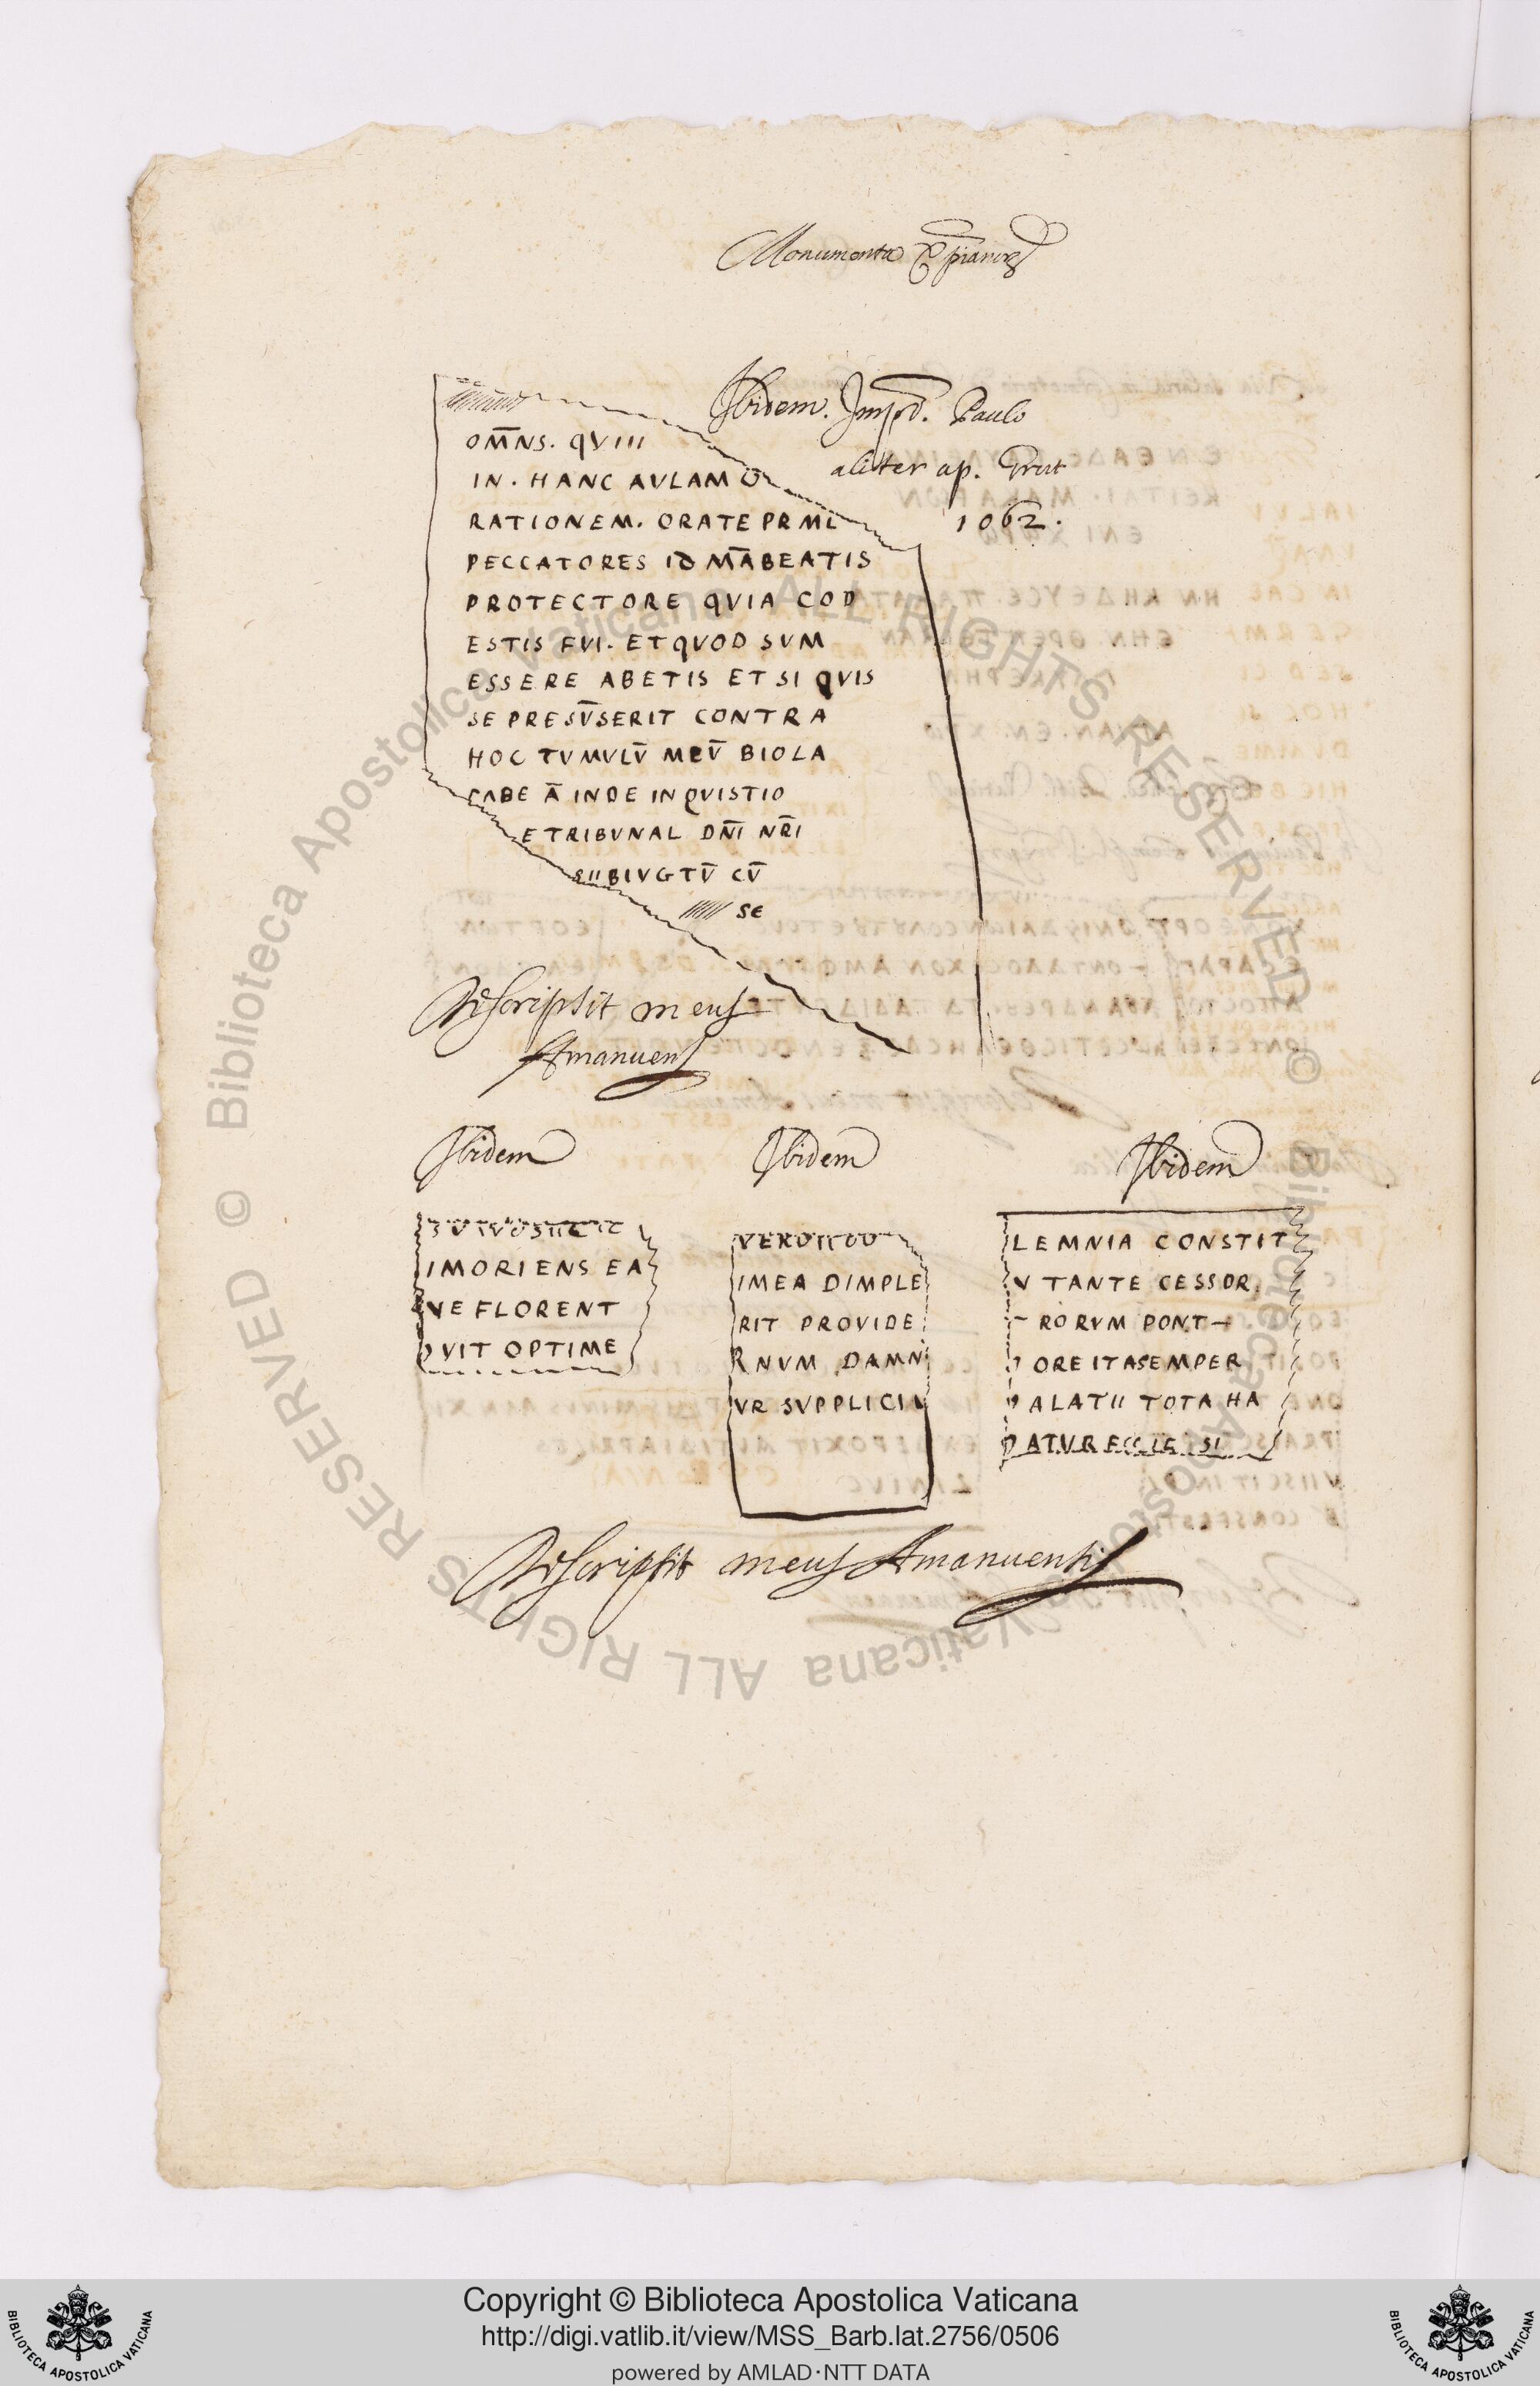 Monumenta
Ibidem. Imprd. Paulo
aliter ap. Grut
1062.
OM̅NS. QVIII
IN. HANC AVLAM O
RATIONEM. ORATE PR MI
PECCATORES ID M̅ABEATIS
PROTECTORE QVIA COD
ESTIS FVI. ET QVOD SVM
ESSERE ABETIS ET SI QVIS
SE PRESV̅SERIT CONTRA
HOC TVMVLV̅ MEV̅ BIOLA
CABE A̅ INDE INQVISTIO
E TRIBVNAL DN̅I NR̅I
SIIBIVGTV̅ CV̅
SE
Descripsit meus
Amanuens
Ibidem
IMORIENS EA
VE FLORENT
VIT OPTIME
Ibidem
IMEA DIMPLE
RIT PROVIDE
RNVM DAMN
VR SVPPLICIV
Ibidem
LEMNIA CONSTIT
V TANTE CESSOR
RORVM PONT
ORE ITASEMPER
ALATII TOTA HA
DATVR ECCLE SI
Descripsit meus Amanuensis
© Biblioteca Apostolica Vaticana ALL RIGHTS RESERVED
© Biblioteca Apostolica Vaticana ALL RIGHTS RESERVED
Copyright © Biblioteca Apostolica Vaticana
http://digi.vatlib.it/view/MSS_Barb.lat.2756/0506
powered by AMLAD·NTT DATA
BIBLIOTECA APOSTOLICA VATICANA
BIBLIOTECA APOSTOLICA VATICANA